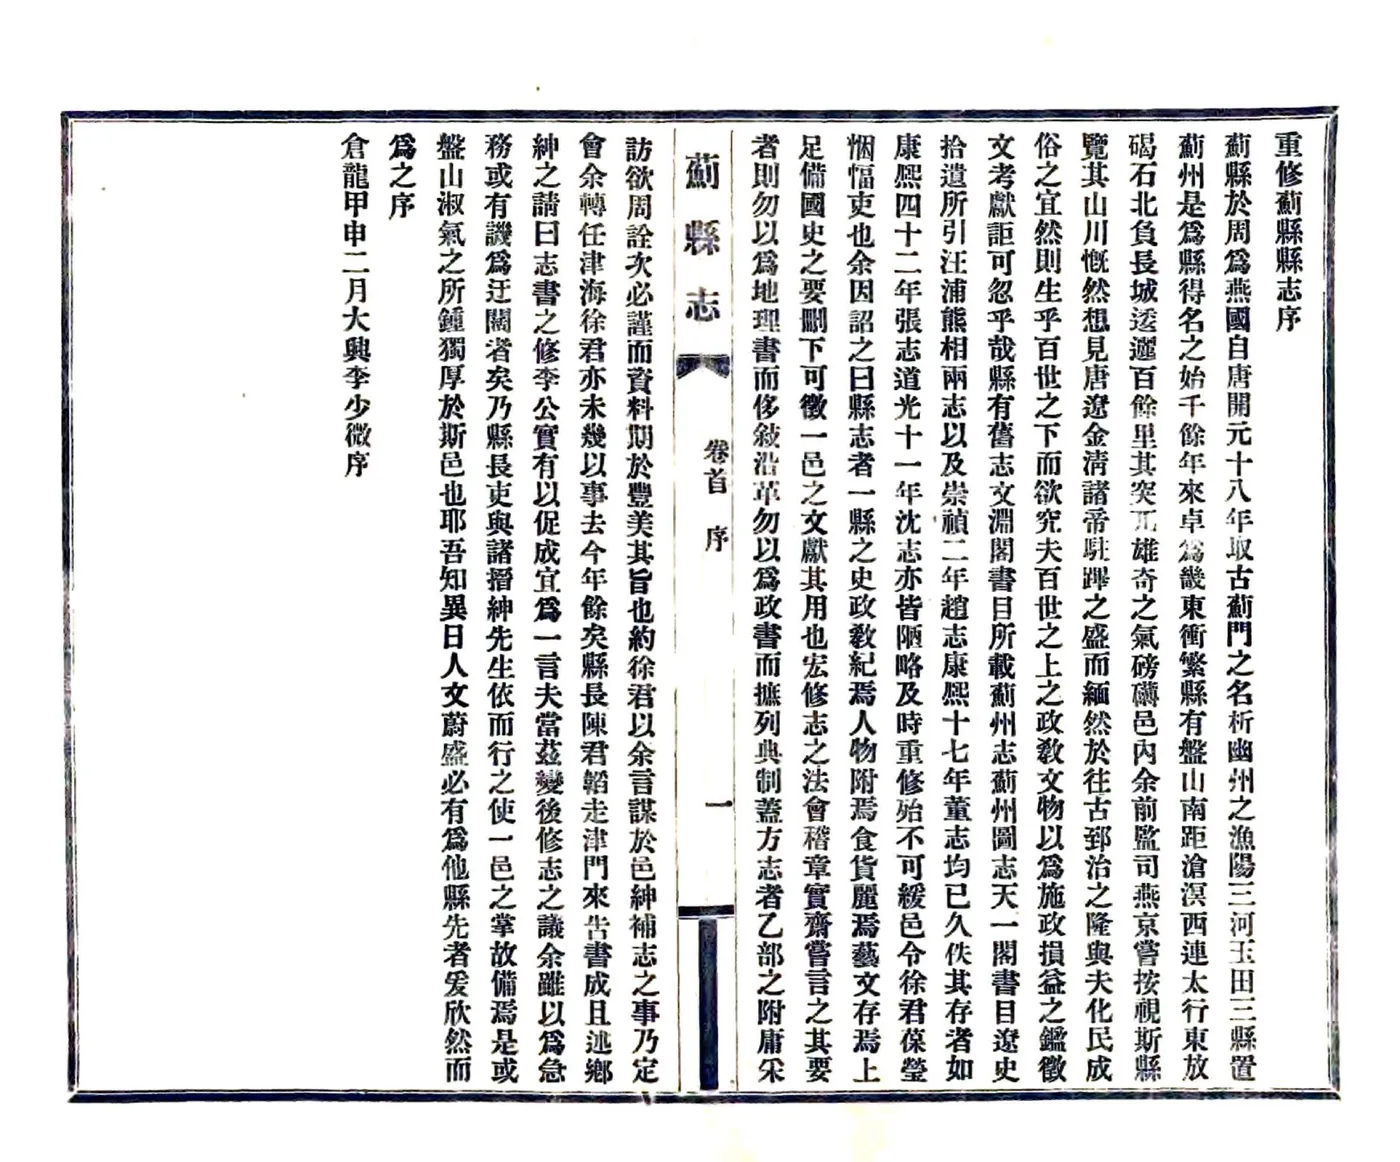 重修薊縣縣志序
薊縣於周爲燕國自唐開元十八年取古薊門之名析幽州之漁陽三河玉田三縣置
薊州是爲縣得名之始千餘年來卓爲畿東衝繁縣有盤山南距滄溟西連太行東放
碣石北負長城逶邐百餘里其突兀雄奇之氣磅礴邑內余前監司燕京嘗按視斯縣
覽其山川慨然想見唐遼金淸諸帝駐蹕之盛而緬然於往古郅治之隆與夫化民成
俗之宜然則生乎百世之下而欲究夫百世之上之政敎文物以爲施政損益之鑑徵
文考獻詎可忽乎哉縣有舊志文淵閣書目所載薊州志薊州圖志天一閣書目遼史
拾遺所引汪浦熊相兩志以及崇禎二年趙志康熙十七年董志均已久佚其存者如
康熙四十二年張志道光十一年沈志亦皆陋略及時重修殆不可緩邑令徐君葆瑩
悃愊吏也余因詔之曰縣志者一縣之史政敎紀焉人物附焉食貨麗焉藝文存焉上
足備國史之要刪下可徵一邑之文獻其用也宏修志之法會稽章實齋嘗言之其要
者則勿以爲地理書而侈敍沿革勿以爲政書而摭列典制蓋方志者乙部之附庸采
薊縣志
卷首 序
一
訪欲周詮次必謹而資料期於豐美其旨也約徐君以余言謀於邑紳補志之事乃定
會余轉任津海徐君亦未幾以事去今年餘矣縣長陳君韜走津門來告書成且述鄕
紳之請曰志書之修李公實有以促成宜爲一言夫當茲變後修志之議余雖以爲急
務或有譏爲迂闊者矣乃縣長吏與諸搢紳先生依而行之使一邑之掌故備焉是或
盤山淑氣之所鍾獨厚於斯邑也耶吾知異日人文蔚盛必有爲他縣先者爰欣然而
爲之序
倉龍甲申二月大興李少微序